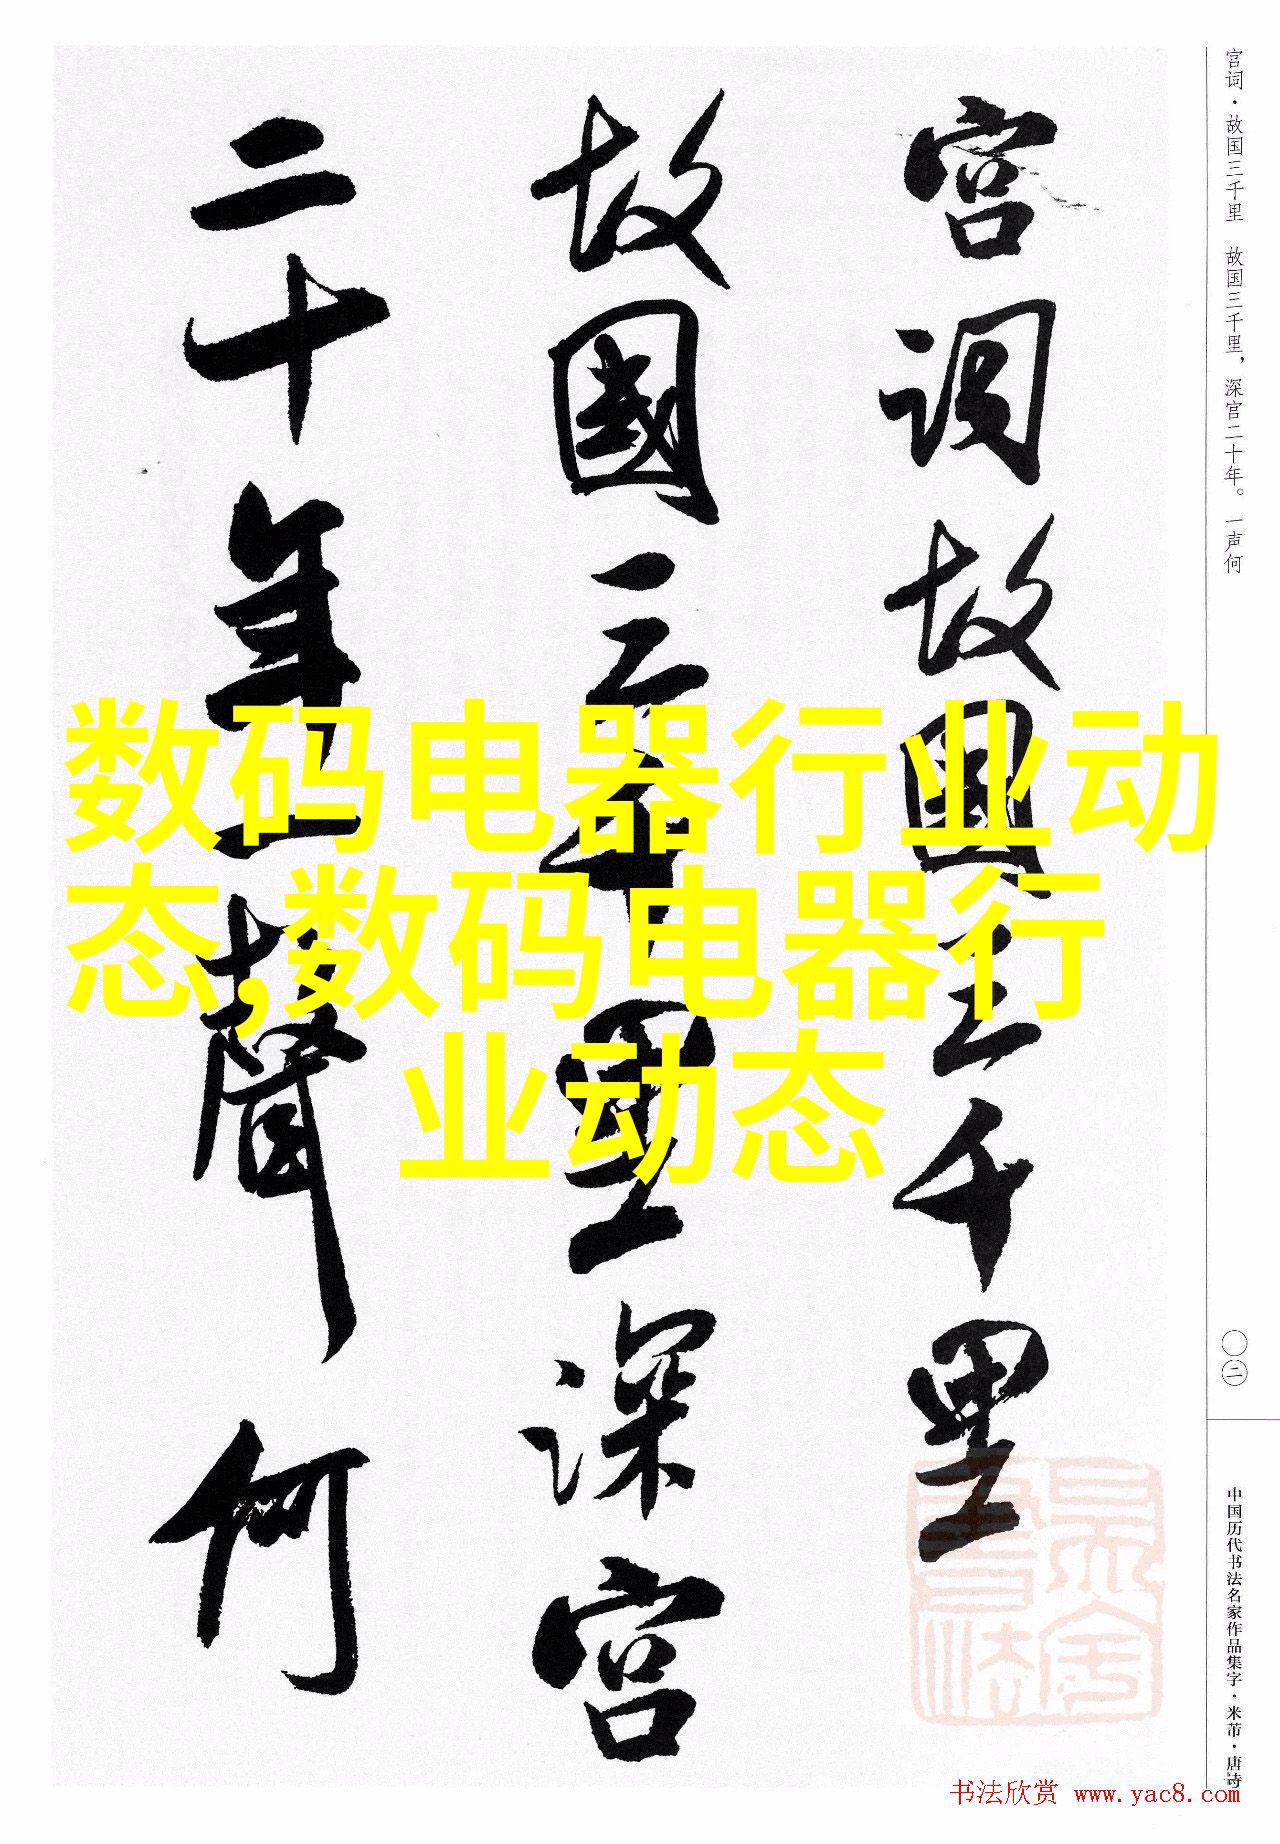 宫词故國三千里
故國三千里深宫
二十年一聲何
数码电器行业动
态,数码电器行
业动态
宫词·故国三千里 故国三千里，深宫二十年。一声何
〇二
中国历代书法名家作品集字·米芾·唐诗
书法欣赏 www.yac8.com